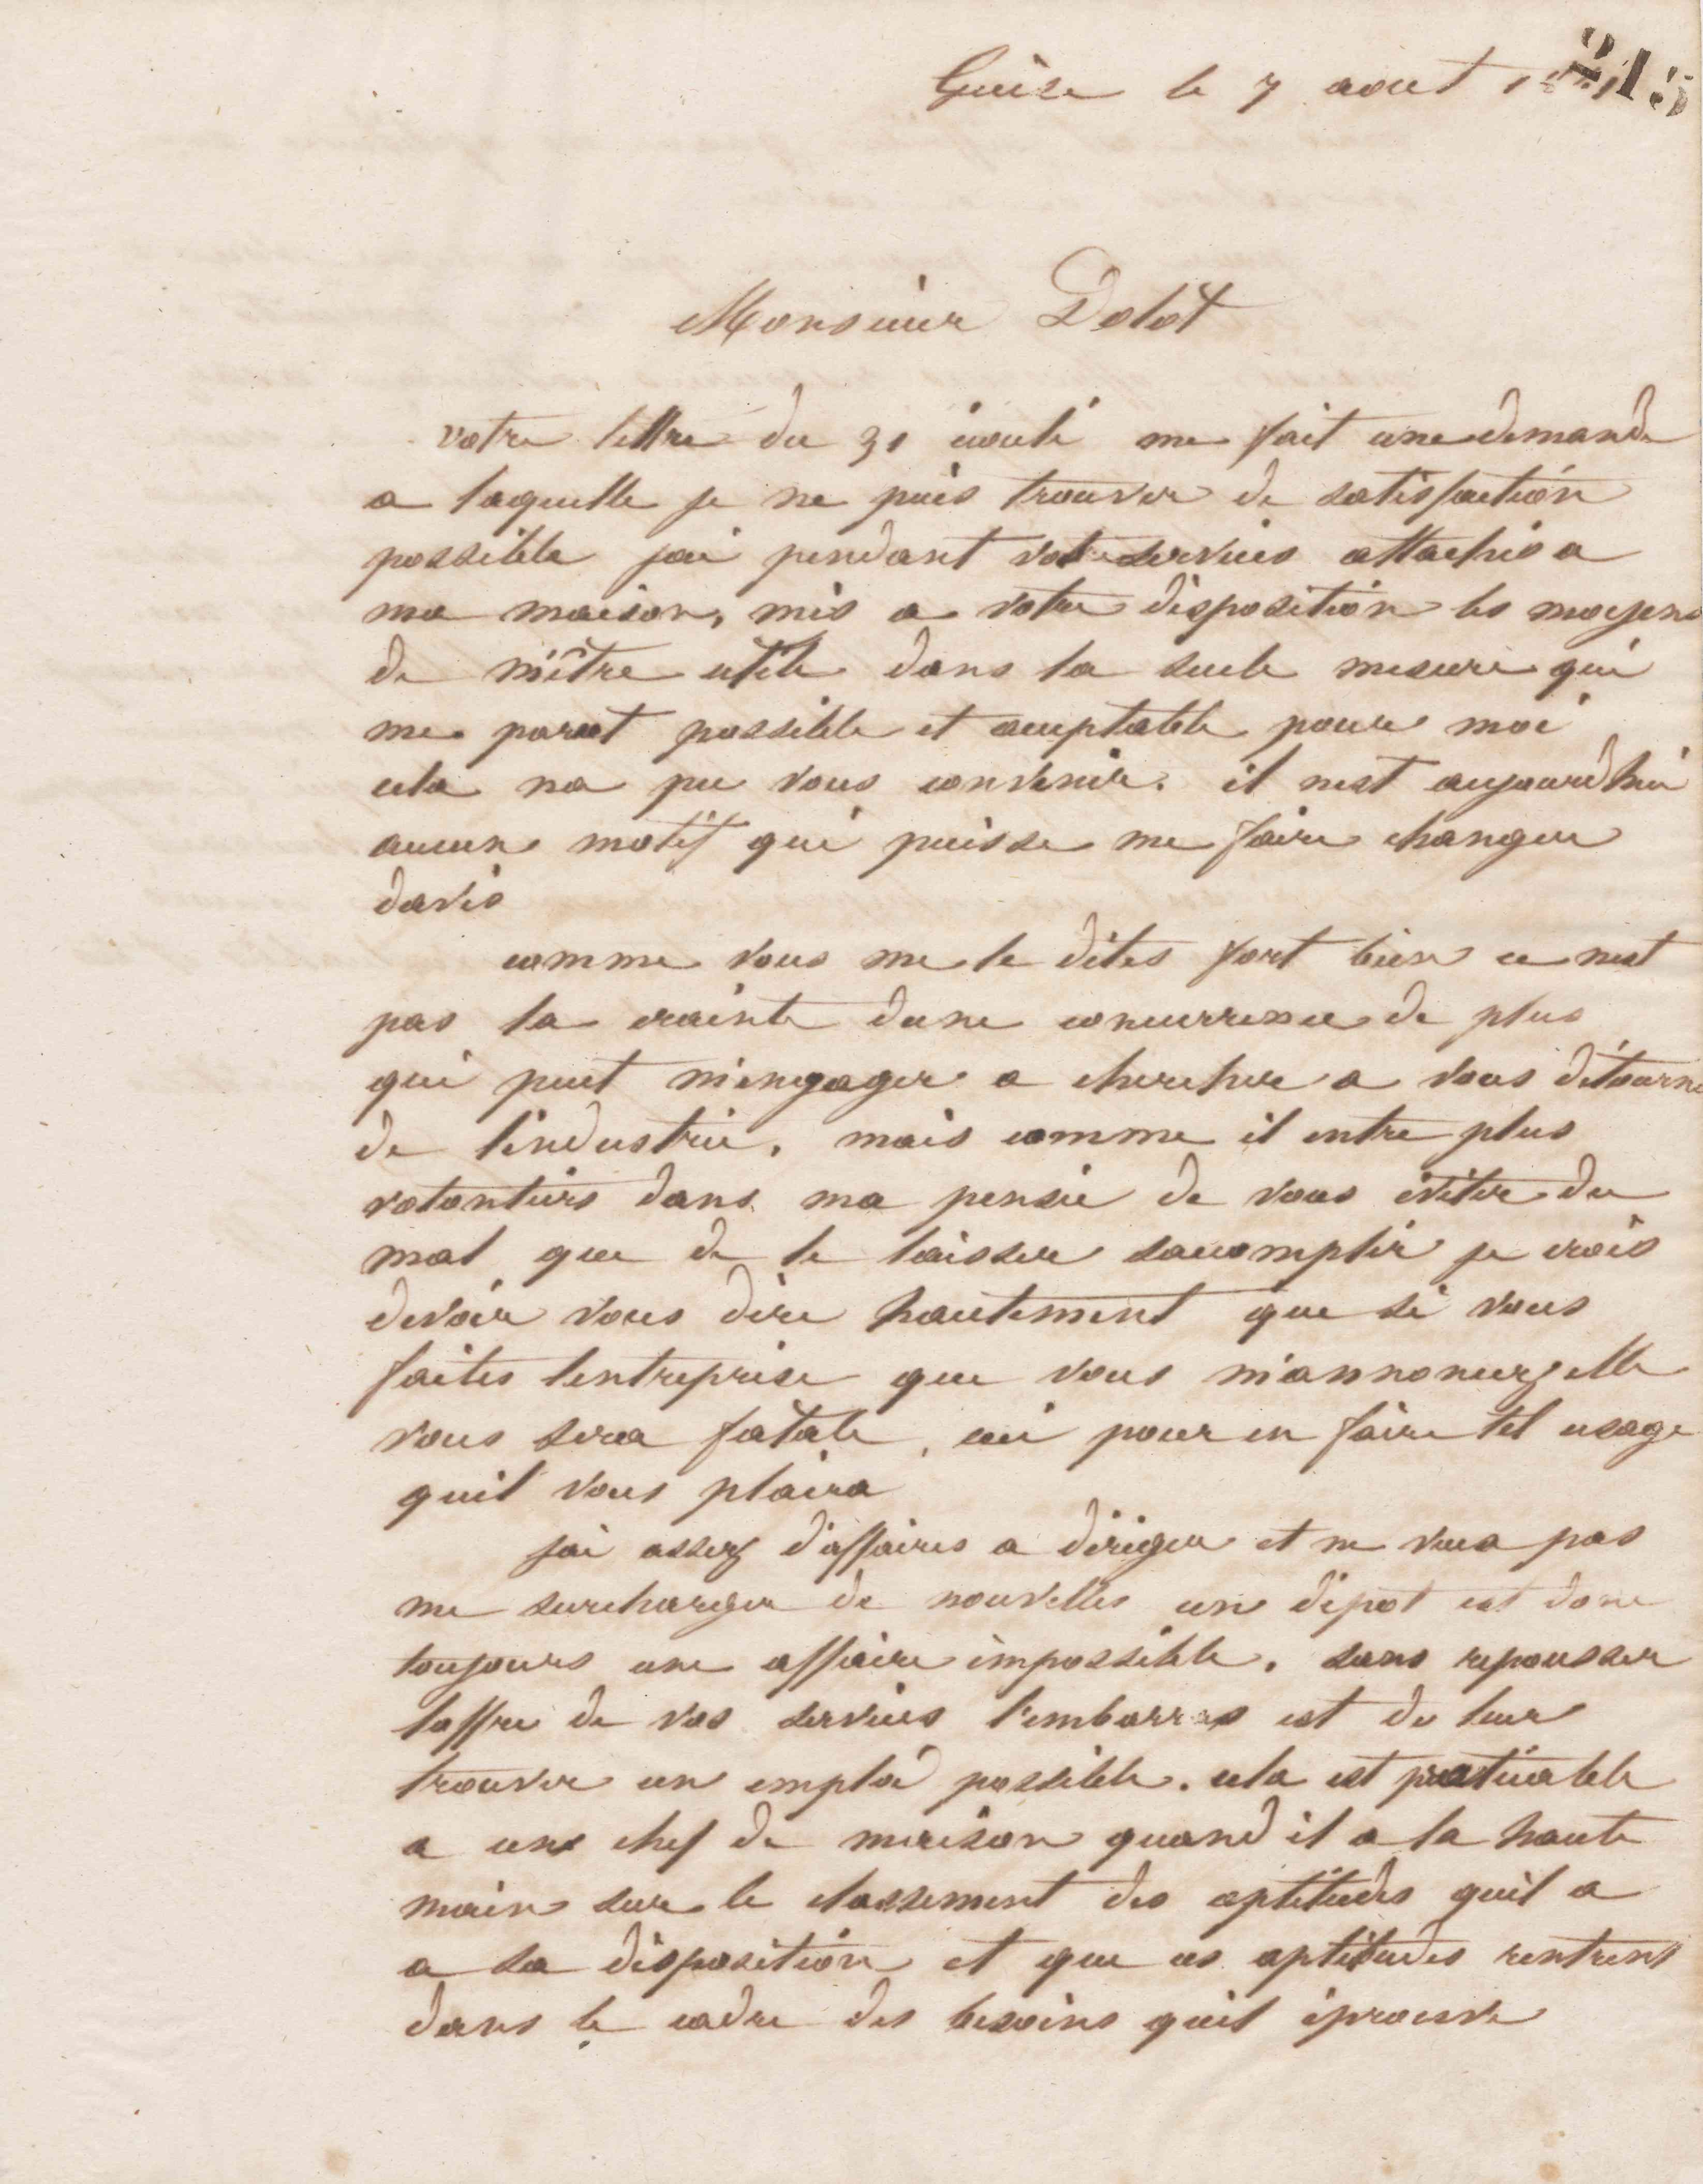 Guise le 7 aout
215
Monsieur Dolot
votre lettre du 31 écoulé me fait une demande
a laquelle je ne puis trouver de satisfaction
possible jai pendant vos services attachés a
ma maison, mis a votre disposition les moyens
de m'être utile dans la seule mesure qui
me parut possible et acceptable pour moi
cela na pu vous convenir. il nest aujourdhui
aucun motif qui puisse me faire changer
davis
comme vous me le dites fort bien ce nest
pas la crainte dune concurrence de plus
qui peut m'engager a chercher a vous détourne
de l'industrie, mais comme il entre plus
volontiers dans ma pensée de vous éviter du
mal que de le laisser saccomplir je crois
devoir vous dire hautement que si vous
faites lentreprise que vous m'annoncez elle
vous sera fatale, ceci pour en faire tel usage
quil vous plaira
jai assez d'affaires a diriger et ne veux pas
me surcharger de nouvelles un dépot est donc
toujours une affaire impossible. sans repousser
loffre de vos services l'embarras est de leur
trouver un emploi possible. cela est praticable
a un chef de maison quand il a la haute
main sur le classement des aptitudes quil a
a sa disposition et que ces aptitudes rentrent
dans le cadre des besoins quil éprouve